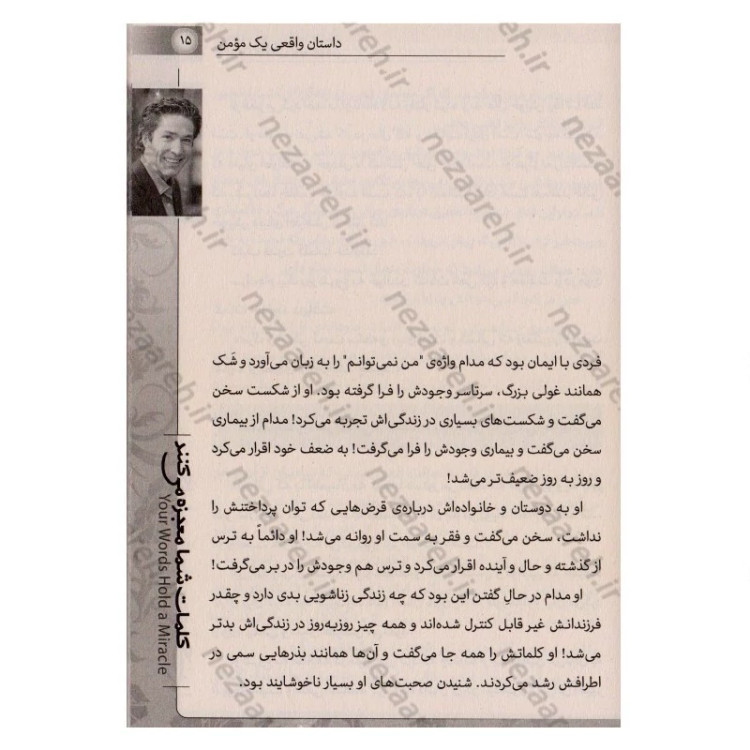 داستان واقعی یک مؤمن
۱۵
فردی با ایمان بود که مدام واژه‌ی "من نمی‌توانم" را به زبان می‌آورد و شَک
همانند غولی بزرگ، سرتاسر وجودش را فرا گرفته بود. او از شکست سخن
می‌گفت و شکست‌های بسیاری در زندگی‌اش تجربه می‌کرد! مدام از بیماری
سخن می‌گفت و بیماری وجودش را فرا می‌گرفت! به ضعف خود اقرار می‌کرد
و روز به روز ضعیف‌تر می‌شد!
او به دوستان و خانواده‌اش درباره‌ی قرض‌هایی که توان پرداختنش را
نداشت، سخن می‌گفت و فقر به سمت او روانه می‌شد! او دائماً به ترس
از گذشته و حال و آینده اقرار می‌کرد و ترس هم وجودش را در بر می‌گرفت!
او مدام در حالِ گفتن این بود که چه زندگی زناشویی بدی دارد و چقدر
فرزندانش غیر قابل کنترل شده‌اند و همه چیز روزبه‌روز در زندگی‌اش بدتر
می‌شد! او کلماتش را همه جا می‌گفت و آن‌ها همانند بذرهایی سمی در
اطرافش رشد می‌کردند. شنیدن صحبت‌های او بسیار ناخوشایند بود.
کلمات شما معجزه می‌کنند
Your Words Hold a Miracle
nezaareh.ir
nezaareh.ir
nezaareh.ir
nezaareh.ir
nezaareh.ir
nezaareh.ir
nezaareh.ir
nezaareh.ir
nezaareh.ir
nezaareh.ir
nezaareh.ir
nezaareh.ir